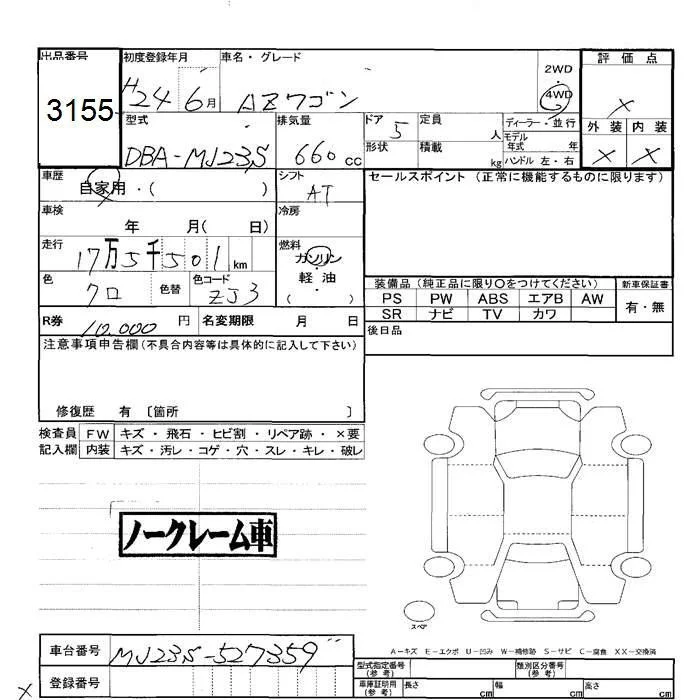 出品番号 初度登録年月 車名・グレード 評価点
3155 H24 6月 AZワゴン 2WD 4WD ×
型式 排気量 ドア 定員 ディーラー・並行 外装 内装
DBA-MJ23S 660cc 5 人 モデル年式 年 × ×
形状 積載 kg ハンドル 左・右
車歴 シフト セールスポイント(正常に機能するものに限ります)
自家用・( ) AT
車検 冷房
年 月( 日)
走行 燃料
17万5千501km ガソリン・軽油
( )
色 色替 色コード 装備品(純正品に限り○をつけてください) 新車保証書
クロ ZJ3 PS PW ABS エアB AW 有・無
SR ナビ TV カワ
R券 10,000円 名変期限 月 日 後日品
注意事項申告欄(不具合内容等は具体的に記入して下さい)
修復歴 有 〔箇所 〕
検査員 FW キズ・飛石・ヒビ割・リペア跡・×要
記入欄 内装 キズ・汚レ・コゲ・穴・スレ・キレ・破レ
ノークレーム車
スペア
A-キズ E-エクボ U-凹み W-補修跡 S-サビ C-腐食 XX-交換済
車台番号 MJ23S-527359
登録番号
型式指定番号(参考) 類別区分番号(参考)
車庫証明用(参考) 長さ cm 幅 cm 高さ cm
×